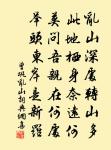 亂山深處轉山多
此地棲身奈遠何
莫問吾親在何處
舉頭東岸是新羅
亂山詞典網書